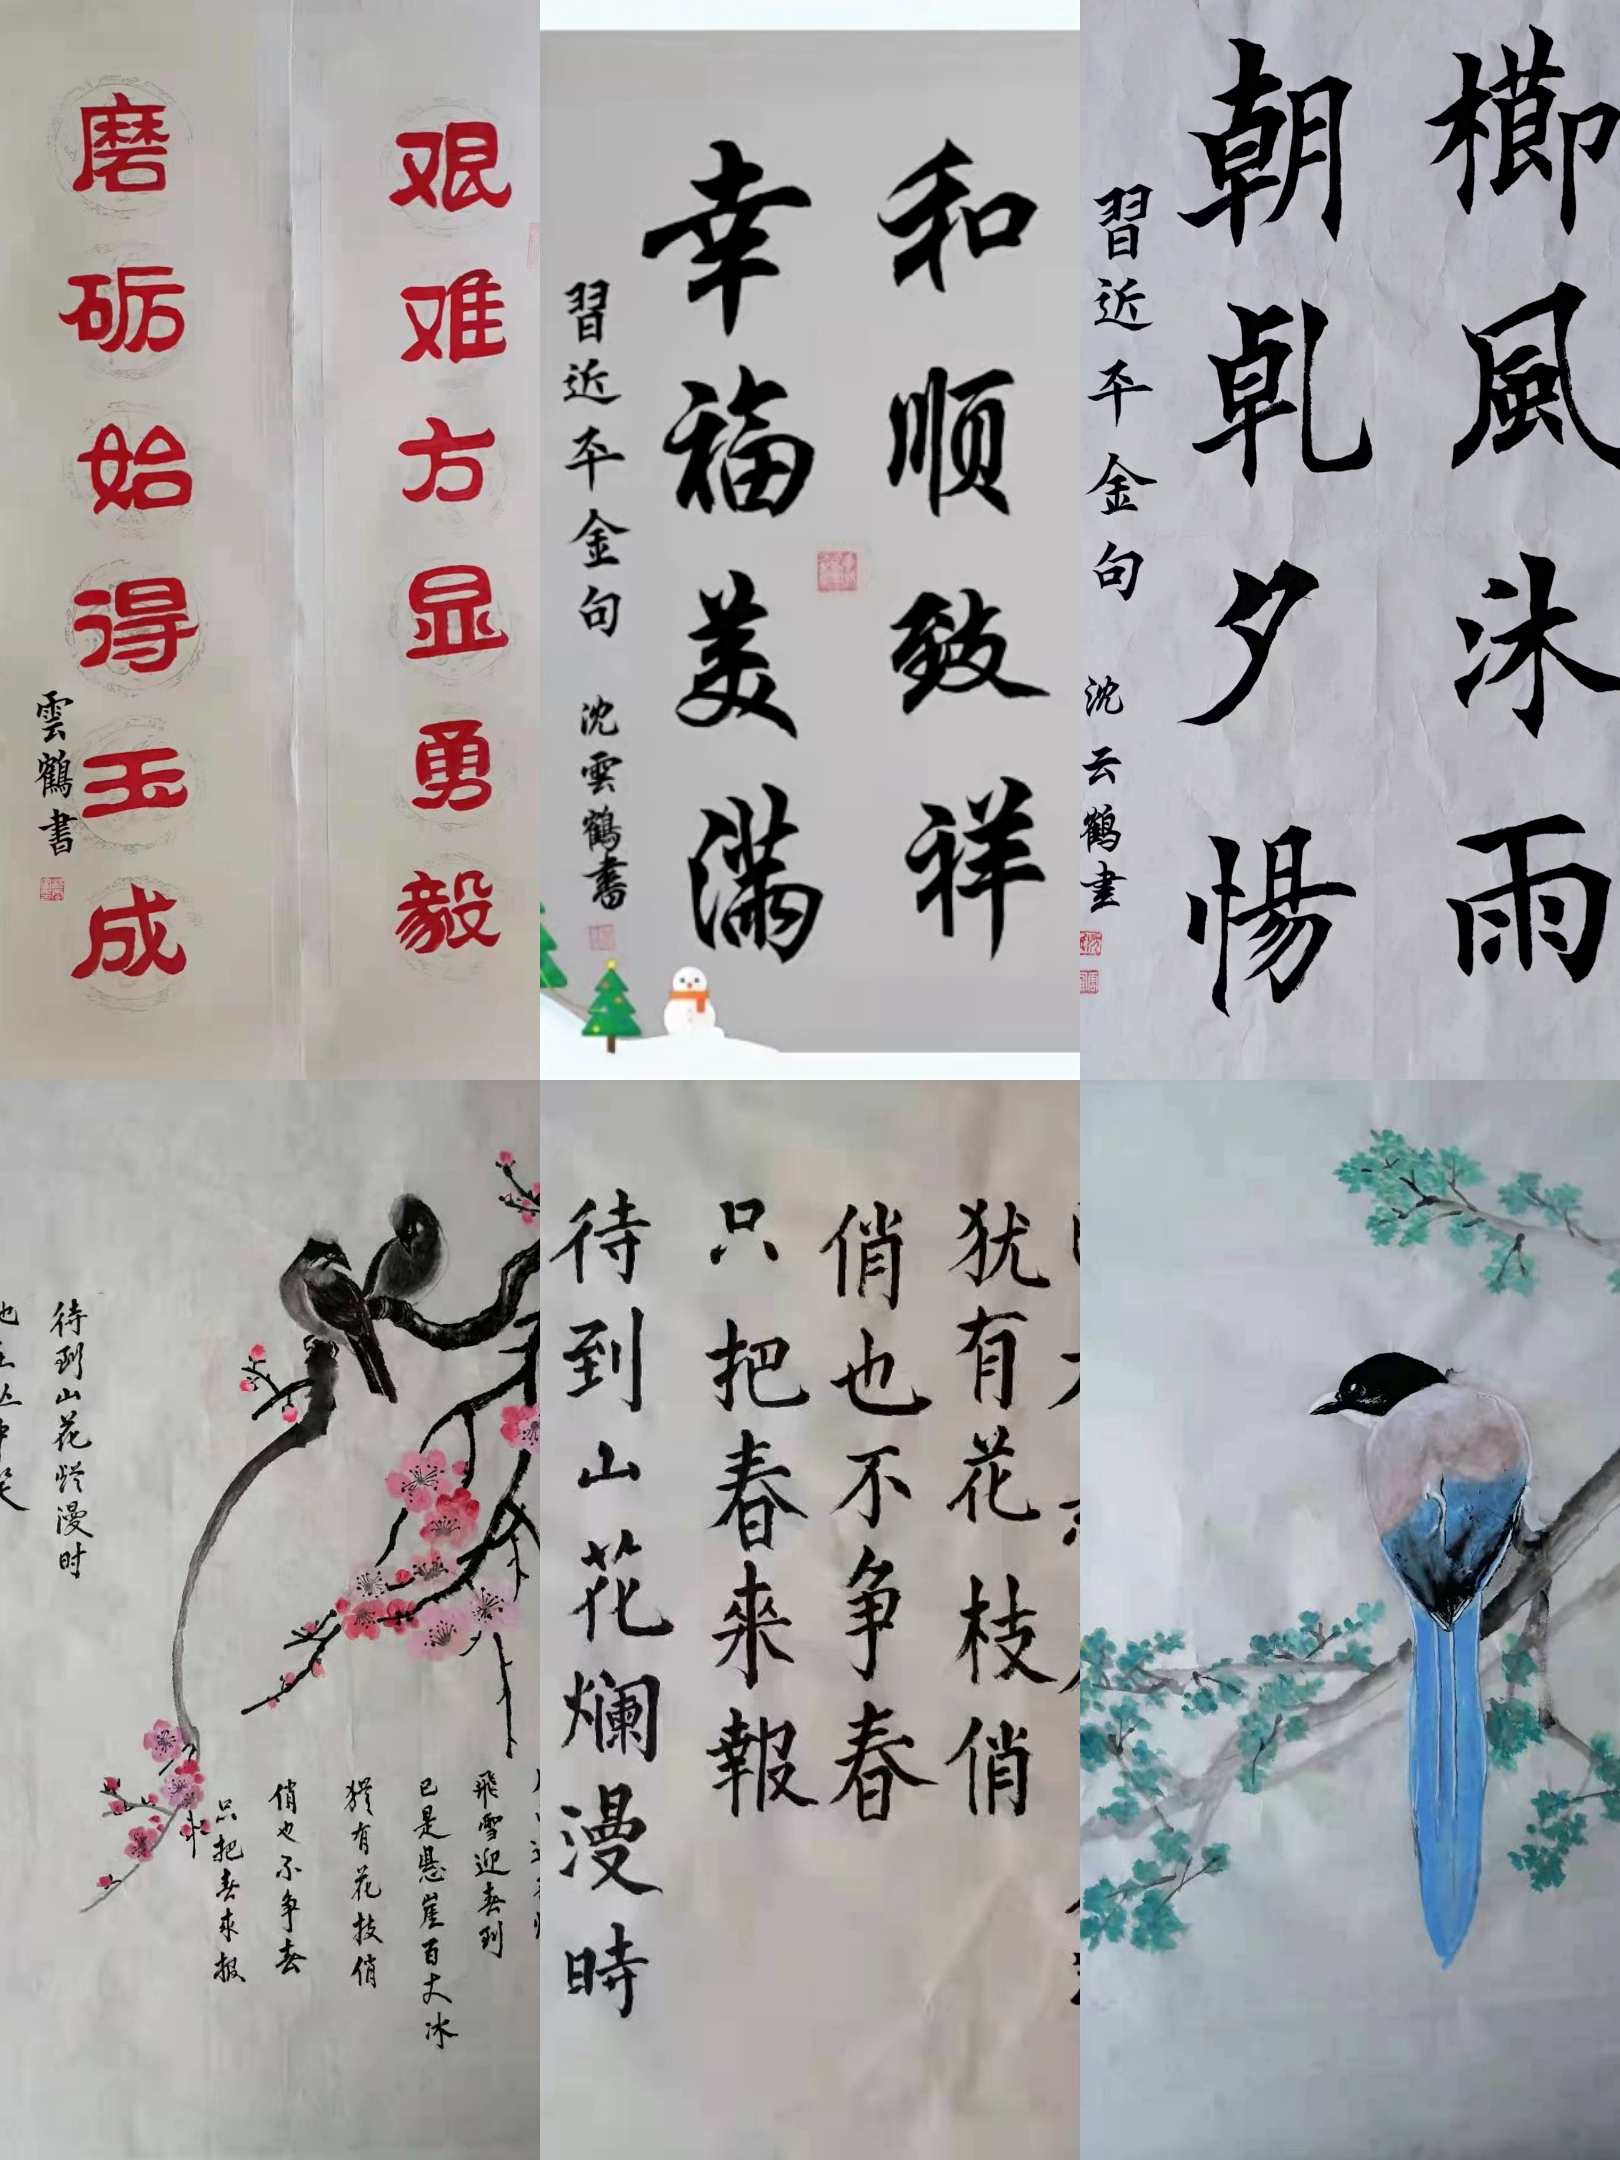 艰难方显勇毅
磨砺始得玉成
雲鶴書
和顺致祥
幸福美满
習近平金句
沈雲鶴書
櫛風沐雨
朝乾夕惕
習近平金句
沈云鶴書
飛雪迎春到
已是懸崖百丈冰
犹有花枝俏
俏也不争春
只把春来报
待到山花烂漫时
犹有花枝俏
俏也不争春
只把春來報
待到山花爛漫時